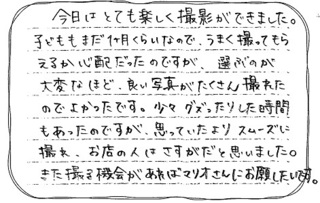 今日はとても楽しく撮影ができました。
子どももまだ1ヶ月くらいなので、うまく撮ってもら
えるか心配だったのですが、選ぶのが
大変なほど、良い写真がたくさん撮れた
のでよかったです。少々グズったりした時間
もあったのですが、思っていたよりスムーズに
撮れ、お店の人はさすがだと思いました。
また撮る機会があればマリオさんにお願したいです。